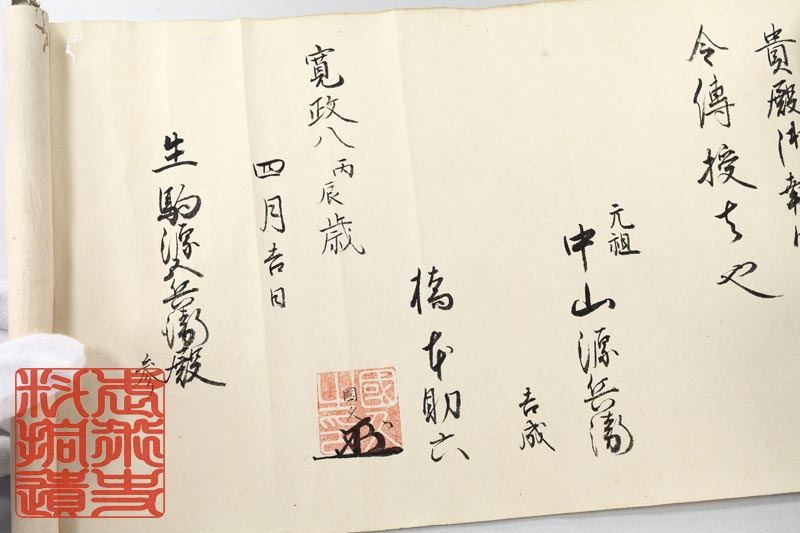 貴殿
令傳授者也
元祖
中山源兵衛
吉成
橋本助六
國久
寛政八丙辰歳
四月吉日
生駒源又兵衛殿
参